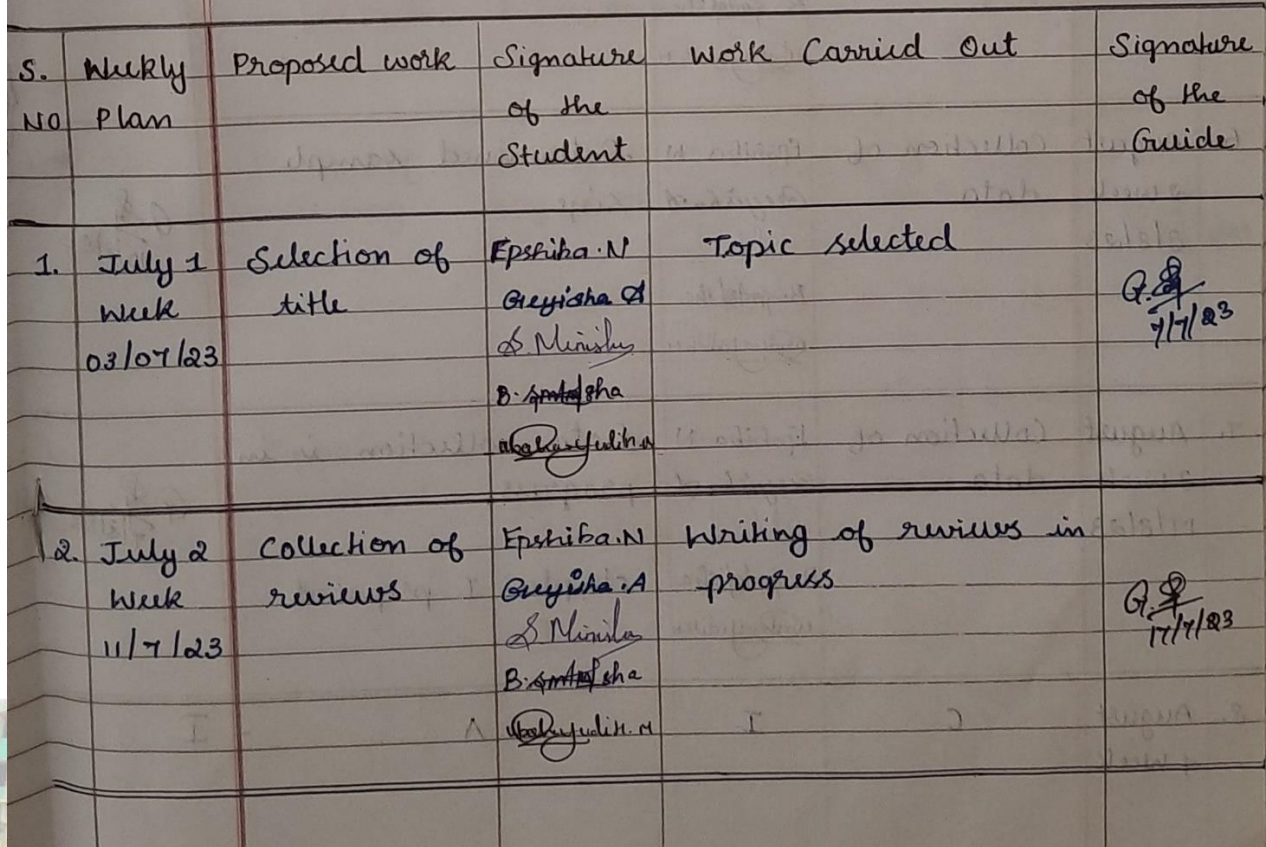 S. NO
Weekly Plan
Proposed work
Signature of the Student
Work Carried Out
Signature of the Guide
1.
July 1
Week
03/07/23
Selection of
title
Epshiba.N
Greyisha A
S. Minisha
B.
Topic selected
7/7/23
2.
July 2
Week
11/7/23
Collection of
reviews
Epshiba.N
Greyisha.A
B.
Writing of reviews in
progress
17/7/23